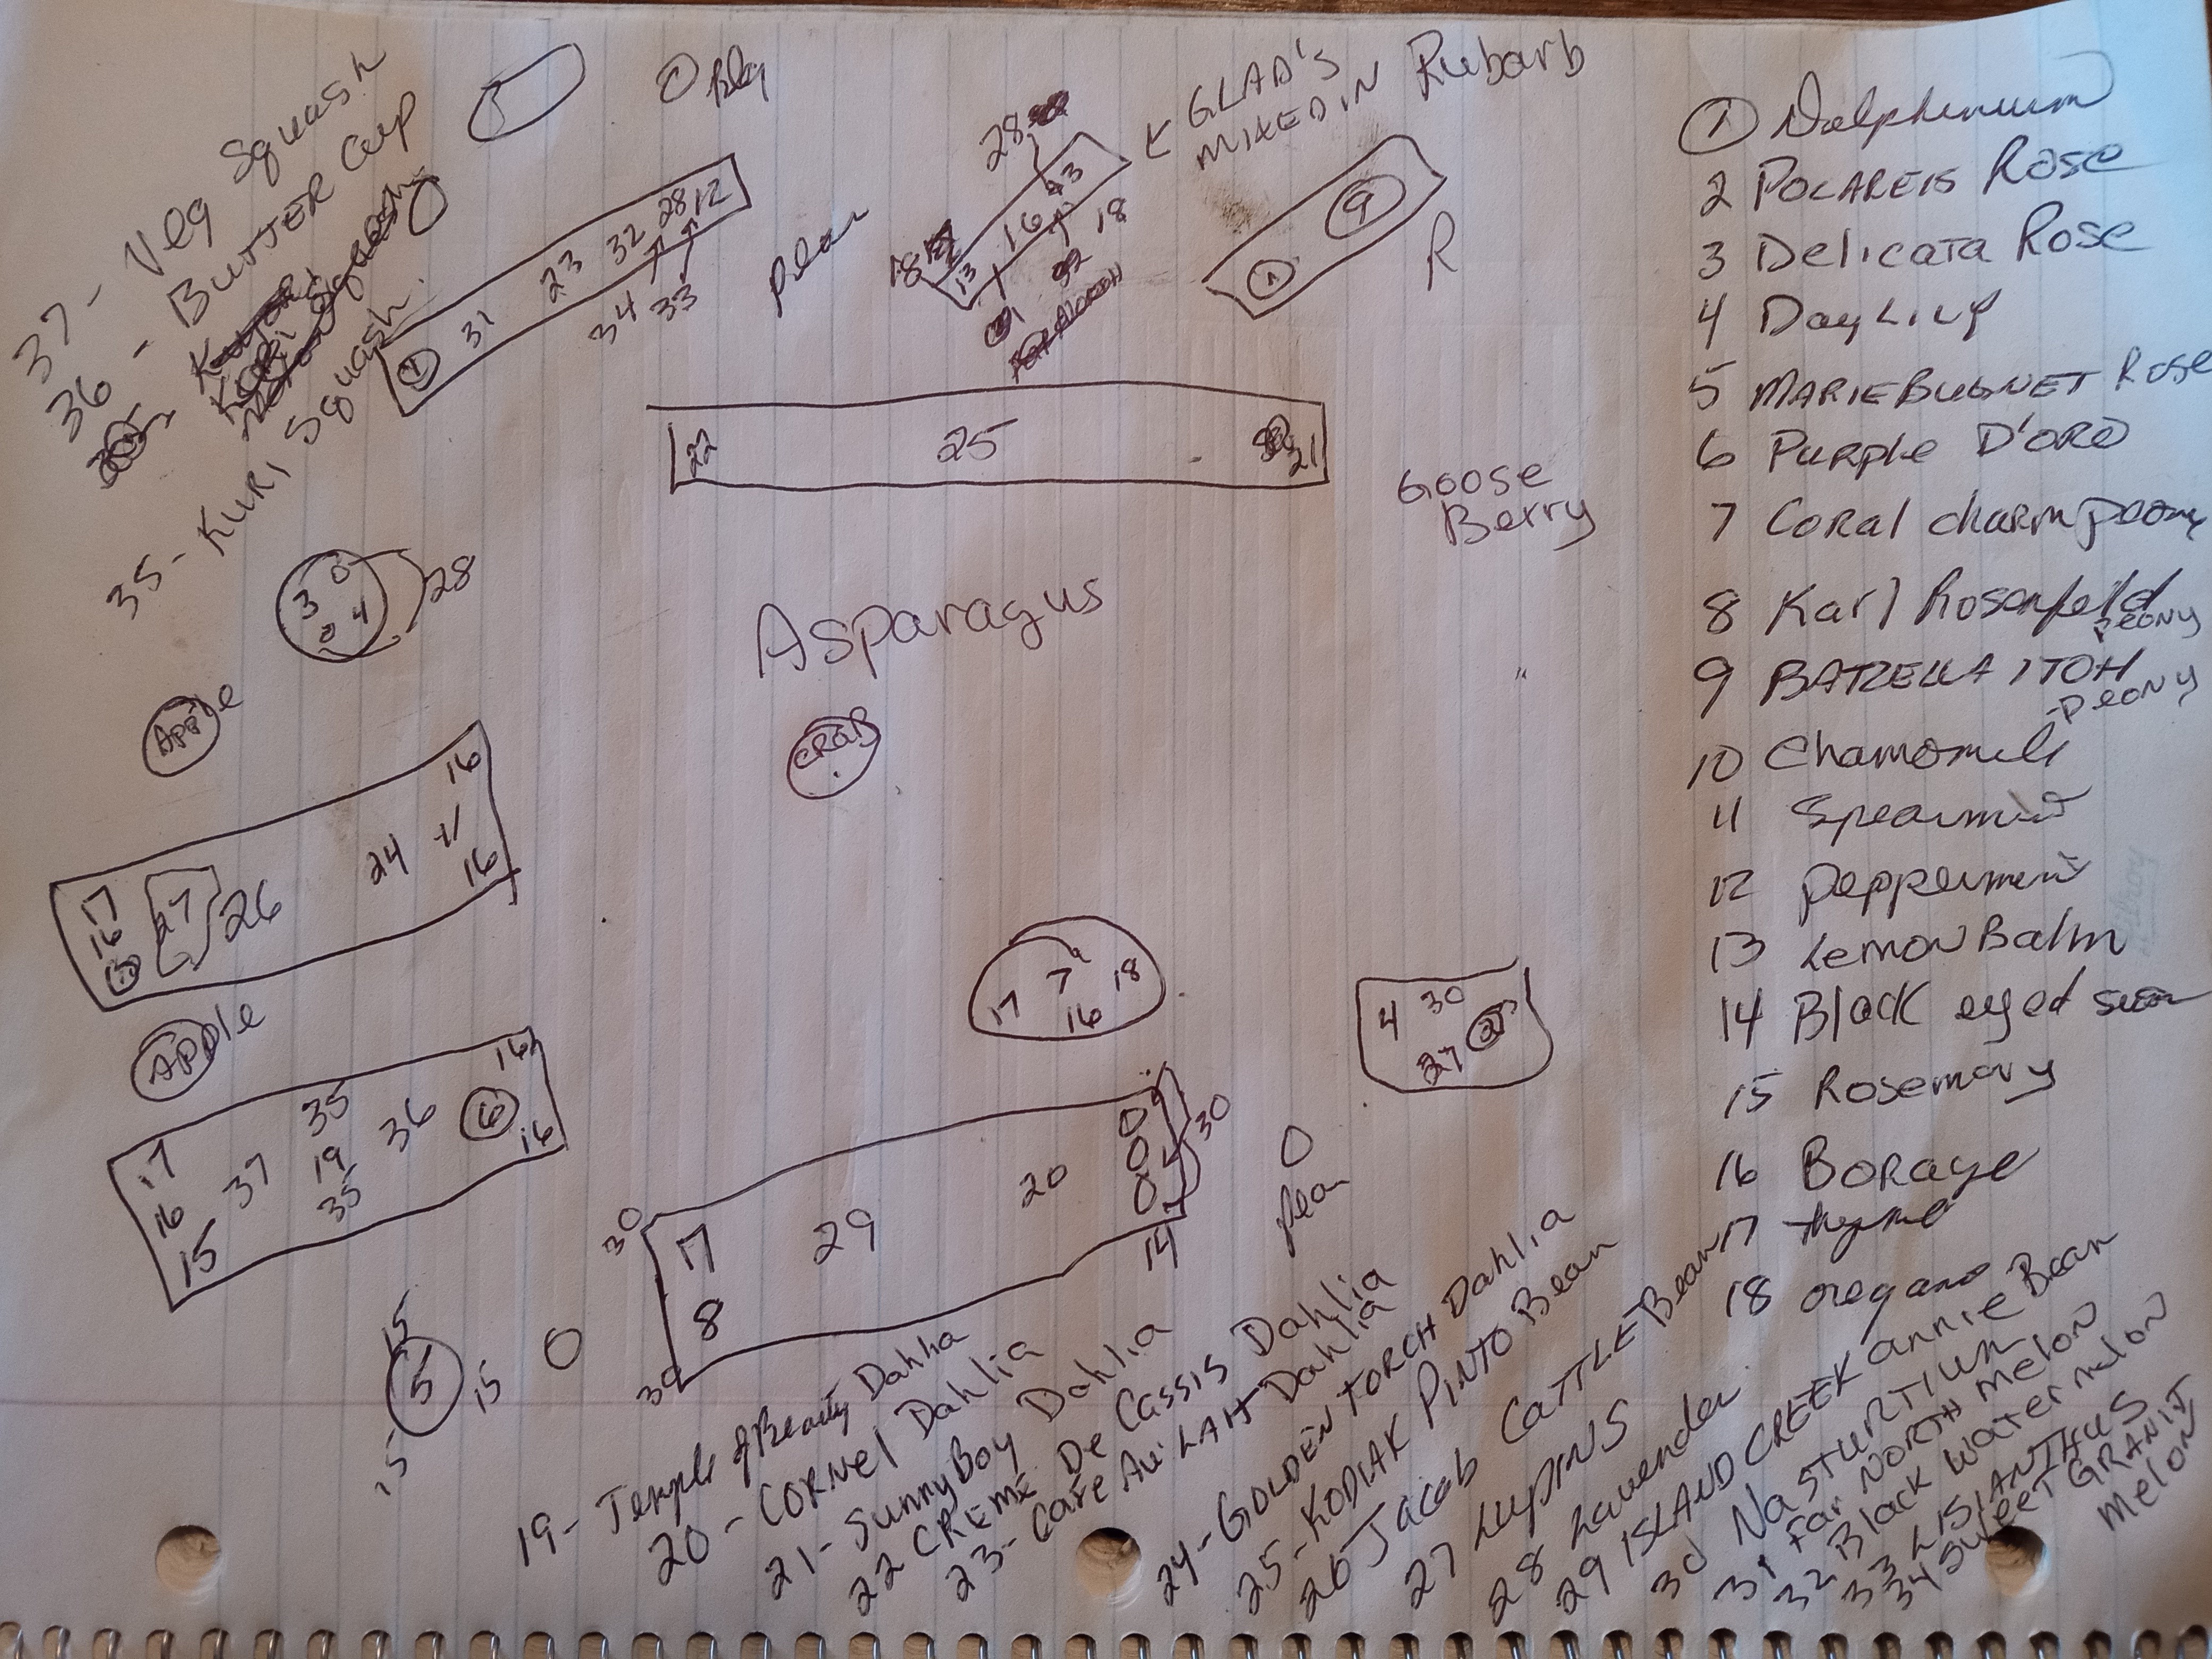 37 - Veg Squash
36 - BUTTER Cup
35 - KURI Squash
1 31 23 32 28 12
34 33
pear
28
← GLAD'S
MIXED IN
Rubarb
13 16
18
1 9
R
22 25 21
Goose
Berry
3 4 28
Asparagus
Apple
CRAB
16
17 27 26 24 11
16 16
Apple
17 7 18
16
4 30
27
17 35 16
16 37 19 36 6
15 35 16
30 30
17 29 20
8 14
30
pear
15
5 15
15
① Dalphenium
2 POLAREIS Rose
3 Delicata Rose
4 DayLily
5 MARIE BUGNET Rose
6 Purple D'ORO
7 Coral charm peony
8 Karl Rosenfeld
peony
9 BATZELLA ITOH
peony
10 Chamomile
11 Spearmint
12 peppermint
13 Lemon Balm
14 Black eyed susan
15 Rosemary
16 BORAGE
17 thyme
18 oregano
19 - Temple of Beauty Dahlia
20 - CORNel Dahlia
21 - SunnyBoy Dahlia
22 CREME De Cassis Dahlia
23 - Cafe Au LAIT Dahlia
24 - GOLDEN TORCH Dahlia
25 - KODIAK PINTO Bean
26 Jacob CATTLE Bean
27 LUPINS
28 Lavender
29 ISLAND CREEK annie Bean
30 NASTURTIUM
31 Far NORTH Melon
32 Black Water melon
33 LISIANTHUS
34 SWEET GRANIT
Melon